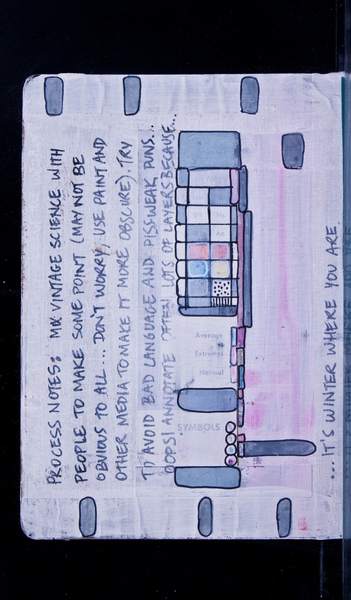 PROCESS NOTES: MIX VINTAGE SCIENCE WITH
PEOPLE TO MAKE SOME POINT (MAY NOT BE
OBVIOUS TO ALL... DON'T WORRY, USE PAINT AND
OTHER MEDIA TO MAKE IT MORE OBSCURE). TRY
TO AVOID BAD LANGUAGE AND PISSWEAK PUNS...
OOPS! ANNOTATE OFTEN! LOTS OF LAYERS BECAUSE...
SYMBOLS
Average
Extremes
Normal
...IT'S WINTER WHERE YOU ARE